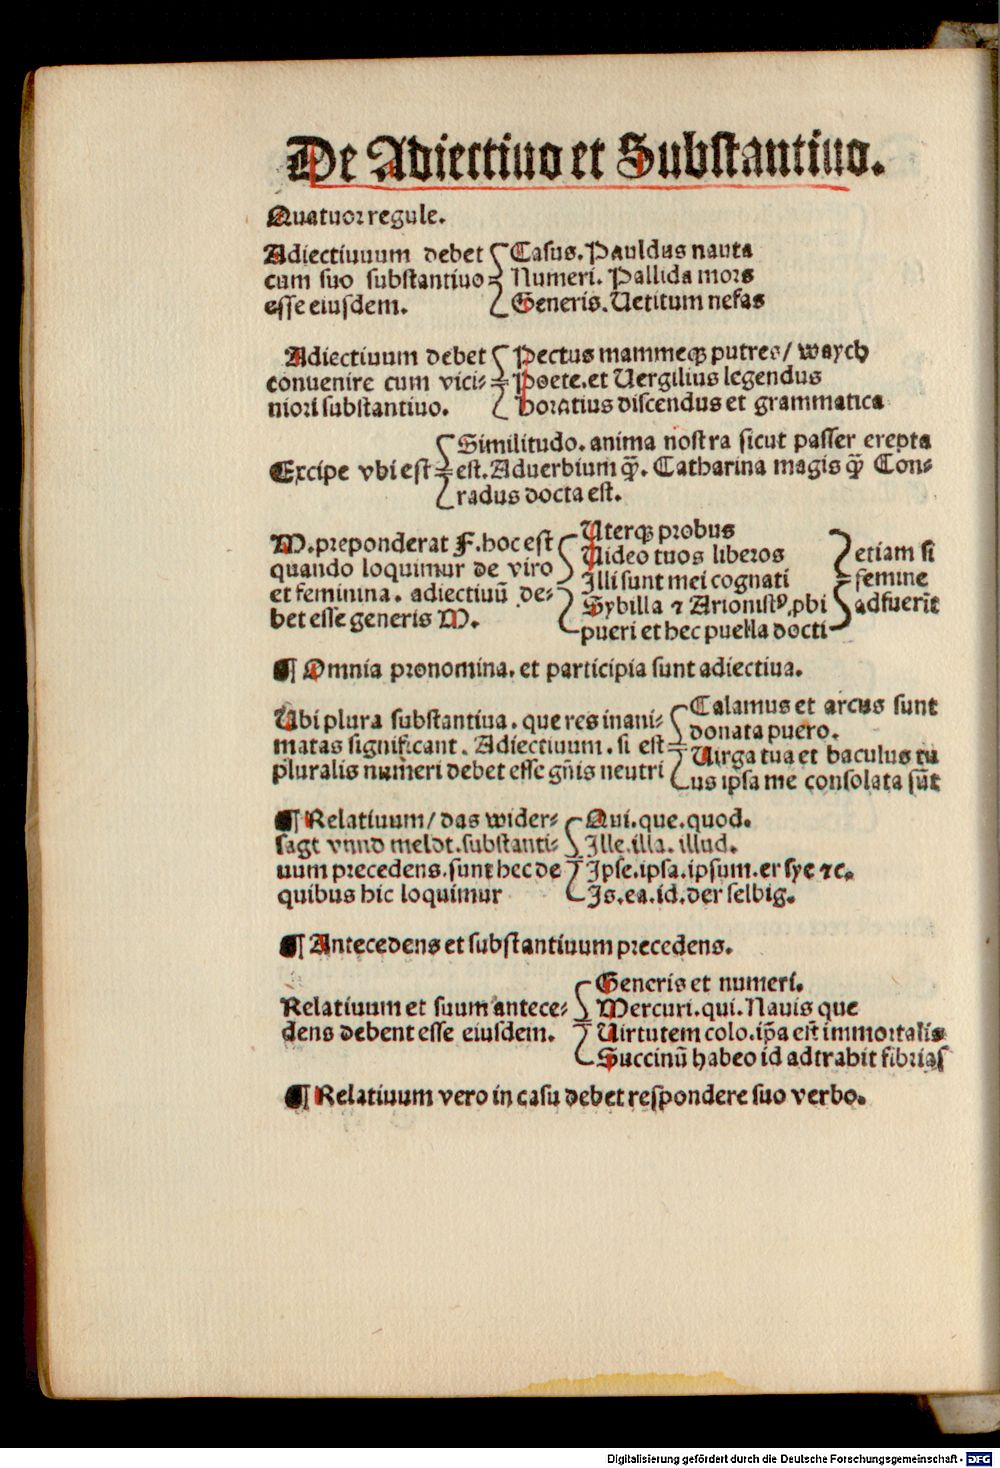 De Adiectiuo et Substantiuo.
Quatuor regule.
Adiectiuuum debet
cum suo substantiuo
esse eiusdem.
Casus. Pauldus nauta
Numeri. Pallida mors
Generis. Uetitum nefas
Adiectiuum debet
conuenire cum vici⸗
niori substantiuo.
Pectus mammeqꝫ putres/ waych
Poete. et Uergilius legendus
Horatius discendus et grammatica
Excipe vbi est
Similitudo. anima nostra sicut passer erepta
est. Aduerbium qͣꝫ. Catharina magis qͣꝫ Con⸗
radus docta est.
M. preponderat F. hoc est
quando loquimur de viro
et feminina. adiectiuū de⸗
bet esse generis M.
Uterqꝫ probus
Uideo tuos liberos
Illi sunt mei cognati
Sybilla ⁊ Arionistꝰ, pbi
pueri et hec puella docti
etiam si
femine
adfuerīt
¶ Omnia pronomina. et participia sunt adiectiua.
Ubi plura substantiua. que res inani⸗
matas significant. Adiectiuum. si est
pluralis numeri debet esse gn̄is neutri
Calamus et arcus sunt
donata puero.
Uirga tua et baculus tu
us ipsa me consolata sūt
¶ Relatiuum/ das wider⸗
sagt vnnd meldt. substanti⸗
uum precedens. sunt hec de
quibus hic loquimur
Qui. que. quod.
Ille. illa. illud.
Ipse. ipsa. ipsum. er sye ⁊c.
Is. ea. id. der selbig.
¶ Antecedens et substantiuum precedens.
Relatiuum et suum antece⸗
dens debent esse eiusdem.
Generis et numeri.
Mercuri. qui. Nauis que
Uirtutem colo. ip̄a est immortalis
Succinū habeo id adtrahit fibrias
¶ Relatiuum vero in casu debet respondere suo verbo.
Digitalisierung gefördert durch die Deutsche Forschungsgemeinschaft - DFG